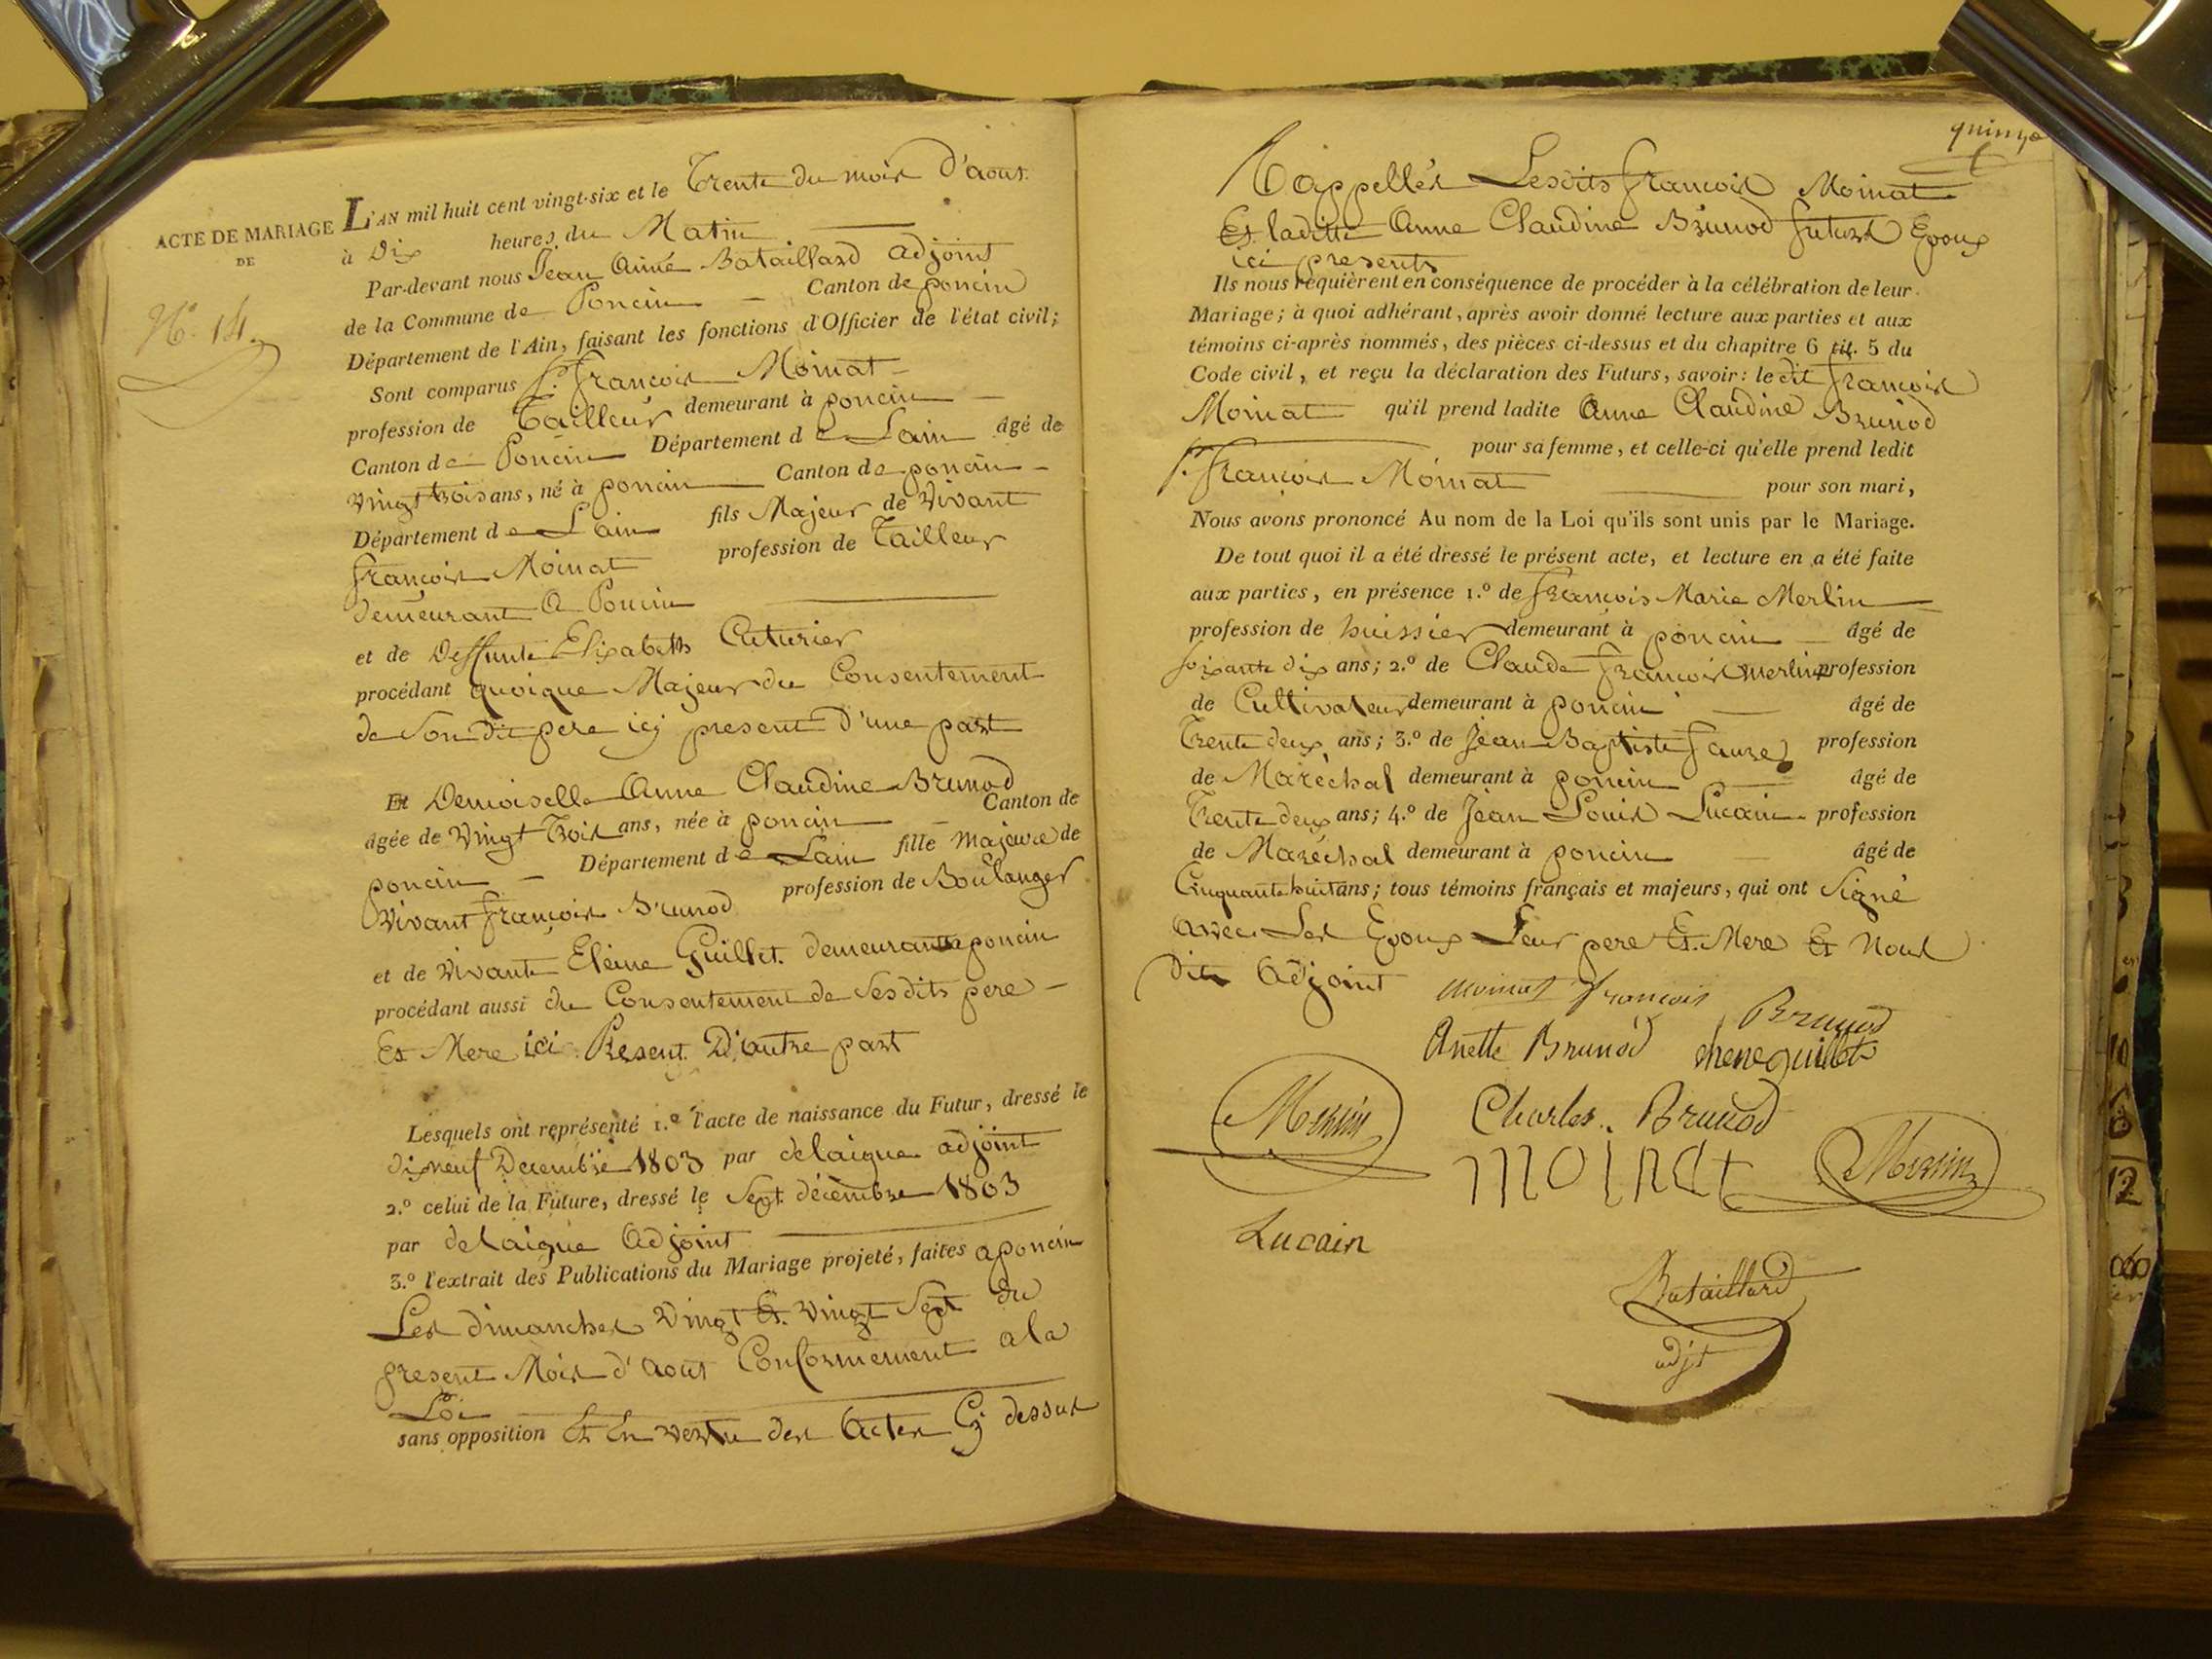 ACTE DE MARIAGE
DE
N.º 14.
L'AN mil huit cent vingt-six et le Trente du mois D'aout
à Dix heures du Matin
Par-devant nous Jean Aimé Bataillard adjoint
de la Commune de Poncin Canton de poncin
Département de l'Ain, faisant les fonctions d'Officier de l'état civil;
Sont comparus S.r françois Moinat
profession de Tailleur demeurant à poncin
Canton de Poncin Département de Lain âgé de
vingt trois ans, né à poncin Canton de poncin
Département de Lain fils Majeur de vivant
françois Moinat profession de Tailleur
demeurant a Poncin
et de Deffunte Elisabeth Cuturier
procédant quoique Majeur du Consentement
de Son dit pere icy present D'une part
Et Demoiselle Anne Claudine Brunod
âgée de vingt Trois ans, née à poncin Canton de
poncin Département de Lain fille majeure de
vivant françois Brunod profession de Boulanger
et de vivante Eleine Guillet demeurant a poncin
procédant aussi du Consentement de Ses dits pere
Et Mere ici Present D'autre part
Lesquels ont représenté 1.º l'acte de naissance du Futur, dressé le
dix neuf Decembre 1803 par delaigue adjoint
2.º celui de la Future, dressé le Sept décembre 1803
par delaigue adjoint
3.º l'extrait des Publications du Mariage projeté, faites a poncin
Les dimanches vingt Et vingt Sept du
present Mois d'aout Conformement a la
Loi
sans opposition Et En vertu des Actes Cy dessus
quinze
Rappellés Lesdits françois Moinat
Et laditte Anne Claudine Brunod futurs Epoux
ici presents
Ils nous requièrent en conséquence de procéder à la célébration de leur
Mariage; à quoi adhérant, après avoir donné lecture aux parties et aux
témoins ci-après nommés, des pièces ci-dessus et du chapitre 6 tit. 5 du
Code civil, et reçu la déclaration des Futurs, savoir: le dit françois
Moinat qu'il prend ladite Anne Claudine Brunod
pour sa femme, et celle-ci qu'elle prend ledit
S.r françois Moinat pour son mari,
Nous avons prononcé Au nom de la Loi qu'ils sont unis par le Mariage.
De tout quoi il a été dressé le présent acte, et lecture en a été faite
aux parties, en présence 1.º de françois Marie Merlin
profession de huissier demeurant à poncin âgé de
soixante dix ans; 2.º de Claude françois Merlin profession
de Cultivateur demeurant à poncin âgé de
Trente deux ans; 3.º de Jean Baptiste profession
de Maréchal demeurant à poncin âgé de
Trente deux ans; 4.º de Jean Louis Lucain profession
de Maréchal demeurant à poncin âgé de
Cinquante huit ans; tous témoins français et majeurs, qui ont Signé
avec Les Epoux Leur pere Et Mere Et Nous
dit Adjoint
moinat françois
Brunod
Anette Brunod
helene guillet
Merlin
Charles Brunod
moinat
Merlin
Lucain
Bataillard
adjt